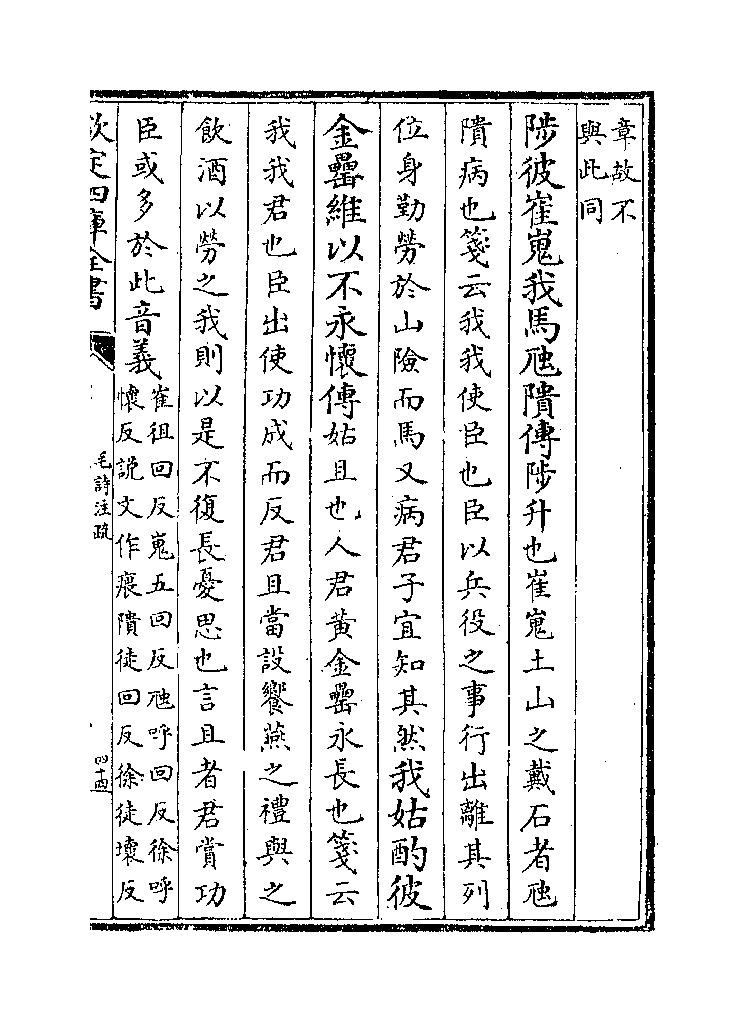 章故不
與此同
陟彼崔嵬我馬虺隤傳陟升也崔嵬土山之戴石者虺
隤病也箋云我我使臣也臣以兵役之事行出離其列
位身勤勞於山險而馬又病君子宜知其然我姑酌彼
金罍維以不永懷傳姑且也人君黃金罍永長也箋云
我我君也臣出使功成而反君且當設饗燕之禮與之
飲酒以勞之我則以是不復長憂思也言且者君賞功
臣或多於此音義崔徂回反嵬五回反虺呼回反徐呼
懷反説文作瘣隤徒回反徐徒壞反
欽定四庫全書
毛詩注疏
四十四